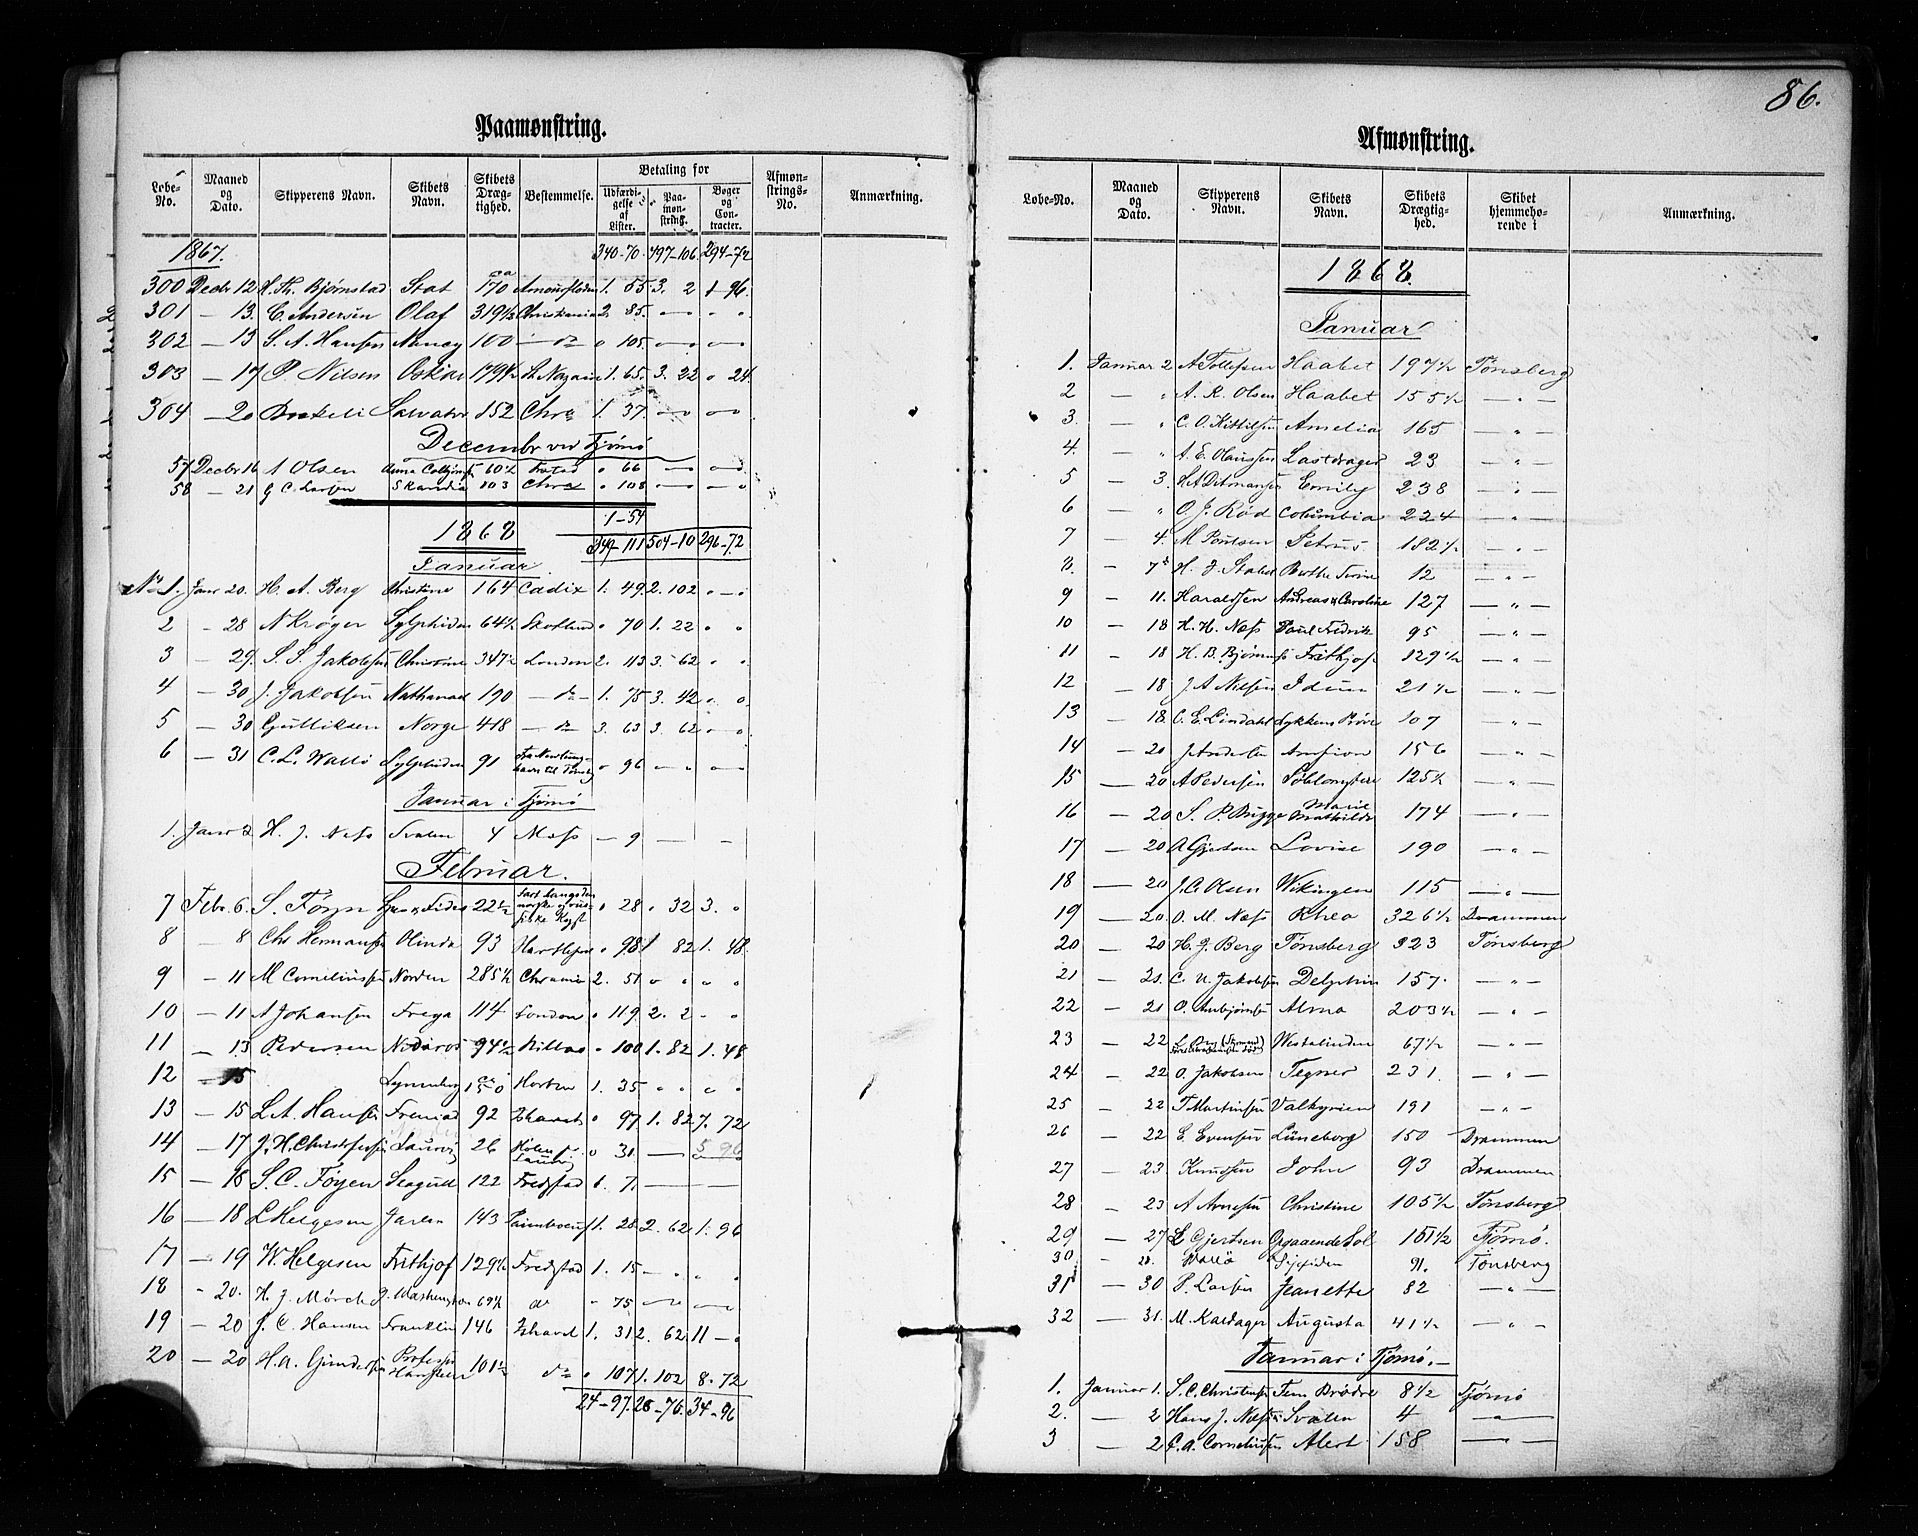 86.
Paamønstring.
Løbe-No. Maaned og Dato. Skipperens Navn. Skibets Navn. Skibets Drægtighed. Bestemmelse. Betaling for Udfærdigelse af Lister. Paamønstring. Bøger og Contracter. Afmønstrings-No. Anmærkning.
1867. 340-70. 497-106. 294-72
300 Decbr 12 Bjørnstad Stat 170 1. 85 3. 2 1 96.
301 — 13. C. Andersen Olaf 319½ Christiania 2 85.
302 — 13 S. A. Hansen Nancy 100 — do 105
303 — 17 P. Nilsen Oskar 1. 65. 3. 22 24.
304 — 20 Salvator 152 Chra 1. 37.
December ved Tjømø
57 Decbr 16 A Olsen 60½ 66
58 — 21 G C. Larsen Skandia 103 Chra 108
1-54
1868 349-111 504-10 296-72
Januar
No 1. Janr 20. H. A. Berg Christine 164 Cadix 1. 49. 2. 102
2 - 28 N Krøger Sylphiden 64½ Skotland 70 1. 22
3 — 29. S. S. Jakobsen Christine 347½ London 2. 113 3. 62
4 — 30 J. Jakobsen Nathanael 190 — do — 1. 75 3. 42
5 — 30 Gulliksen Norge 418 — do 3. 63 3. 62
6 — 31 C. L. Wallø Sylphiden 91 96
Januar i Tjømø
1. Janr 2 H. J. Næss Svalen 4 Moss — 9
Februar.
7 Febr. 6. S. Føyn 22½ 28 32 3.
8 — 8 Chr Hermansen Olinda 93 Hartlepool 98 1. 82 1. 48.
9 — 11 M Corneliussen Norden 285½ 2. 51
10 — 11 A Johansen Freya 114 London 119 2. 2
11 — 13 Pedersen Nidaros 94½ 100 1. 82 1. 48
12 — 15 150 Horten 1. 35.
13 — 15 L. A. Hansen 92 97 1. 82 7. 72
14 — 17 J. H. Christofersen Laurvig 26 31. 5 96
15 — 18 S. C. Føyen Seagull 122 Fredstad 7.
16 — 18 L Helgesen Jarlen 143 1. 28 2. 62 1. 96
17 — 19 W. Helgesen Frithjof 129½ Fredstad 1. 15
18 - 20. H. J. Mørch G. Washington 69½ do 75
19 — 20 J. C. Hansen Franklin 146 1. 31 2. 62 11
20 — 20 H. A. Gundersen Professor Hansteen 101½ do 107 1. 102 8. 72
24-97. 28-76. 34-96
Afmønstring.
Løbe-No. Maaned og Dato. Skipperens Navn. Skibets Navn. Skibets Drægtighed. Skibet hjemmehørende i Anmærkning.
1868.
Januar
1. Januar 2 A Tollefsen Haabet 197½ Tønsberg
2 " A. R. Olsen Haabet 155½ — " —
3. " C. O. Kittilsen Amelia 165 — " —
4. " A. E. Olaussen Lastdrager 23 — " —
5 — 3. Ditmansen Emily 238 — " —
6 " O. J. Rød Columbia 224 — " —
7 — 4. M Poulsen Petrus 182½ — " —
8. — 7 Berthe 12 — " —
9 — 11. Haraldsen Andreas & Caroline 127 — " —
10 — 18 H. H. Næss Paul Fredrik 95 — " —
11 — 18 H. B. Bjørnnes Frithjof 129½ — " —
12 — 18 J. A Nilsen Idun 21½ — " —
13 — 18. C. E. Lindahl Lykkens Prøve 107 — " —
14 — 20 J Andersen Amfion 156 — " —
15 — 20 A Pedersen Søblomsten 125½ — " —
16 — 20 S. P. Brygge Marie Mathilde 174 — " —
17 — 20 A Gjertsen Lovise 190 — " —
18 — 20 J. C. Olsen Wikingen 115 — " —
19 — 20. O. M. Næss Rhea 326½ Drammen
20 — 20 H. J. Berg Tønsberg 323 Tønsberg
21 — 21. C. N. Jakobsen Delphin 157. — " —
22 — 21 O. Anbjørnsen Alma 203½ — " —
23 — 22 Westalinden 67½ — " —
24 — 22 O. Jakobsen Tegner 231. — " —
25 — 22 T Martinsen Valkyrien 191 — " —
26 — 22 E. Evensen Lüneborg 150 Drammen
27 — 23 Knudsen John 93 Drammen
28 — 23 A Arnesen Christine 105½ Tønsberg
29 — 27 L Gjertsen Opgaaende Sol 151½ Tjømø.
30 - 28. Wallø 91. Tønsberg
31 — 30 P. Larsen Jeanette 82 — " —
32 — 31. M. Kaldager Augusta 41½ — " —
Januar i Tjømø. —
1. Januar 1. S. C. Christensen Fem Brødre 8½ Tjømø
2. — 2 Hans J. Næss Svalen 4 — " —
3 — 2 C. A. Corneliussen Alert 158 — " —